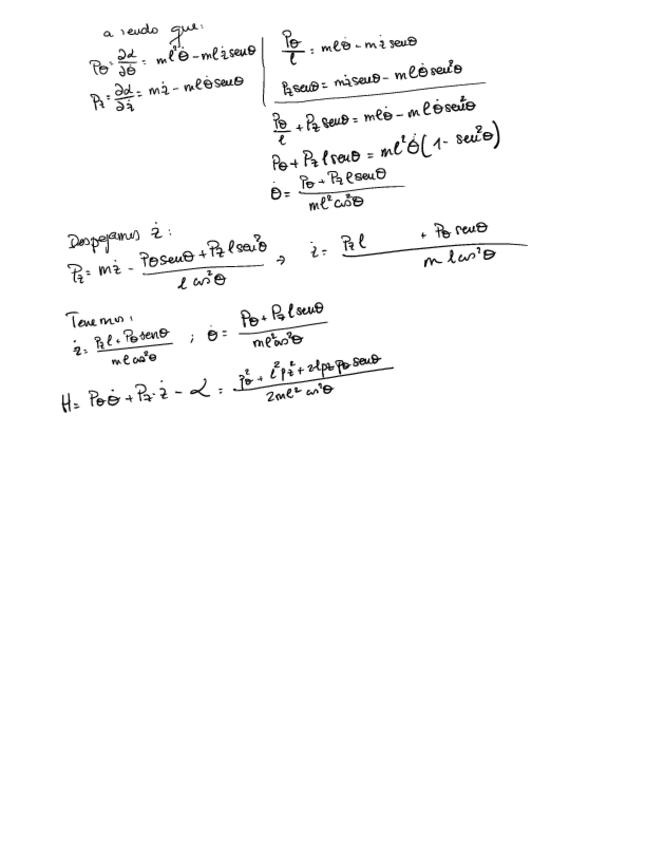 a sendo que:
Pθ = ∂L/∂θ̇ = ml²θ̇ - mlż senθ
Pz = ∂L/∂ż = mż - mlθ̇ senθ
Pθ/l = mlθ̇ - mż senθ
Pz senθ = mż senθ - mlθ̇ sen²θ
Pθ/l + Pz senθ = mlθ̇ - mlθ̇ sen²θ
Pθ + Pz l senθ = ml²θ̇ (1 - sen²θ)
θ̇ = (Pθ + Pz l senθ)/(ml² cos²θ)
Despejamos ż :
Pz = mż - (Pθ senθ + Pz l sen²θ)/(l cos²θ) → ż = (Pz l + Pθ senθ)/(m l cos²θ)
Tenemos:
ż = (Pz l + Pθ senθ)/(ml cos²θ) ; θ̇ = (Pθ + Pz l senθ)/(ml² cos²θ)
H = Pθ θ̇ + Pz · ż - L = (Pθ² + l² Pz² + 2l Pz Pθ senθ)/(2ml² cos²θ)